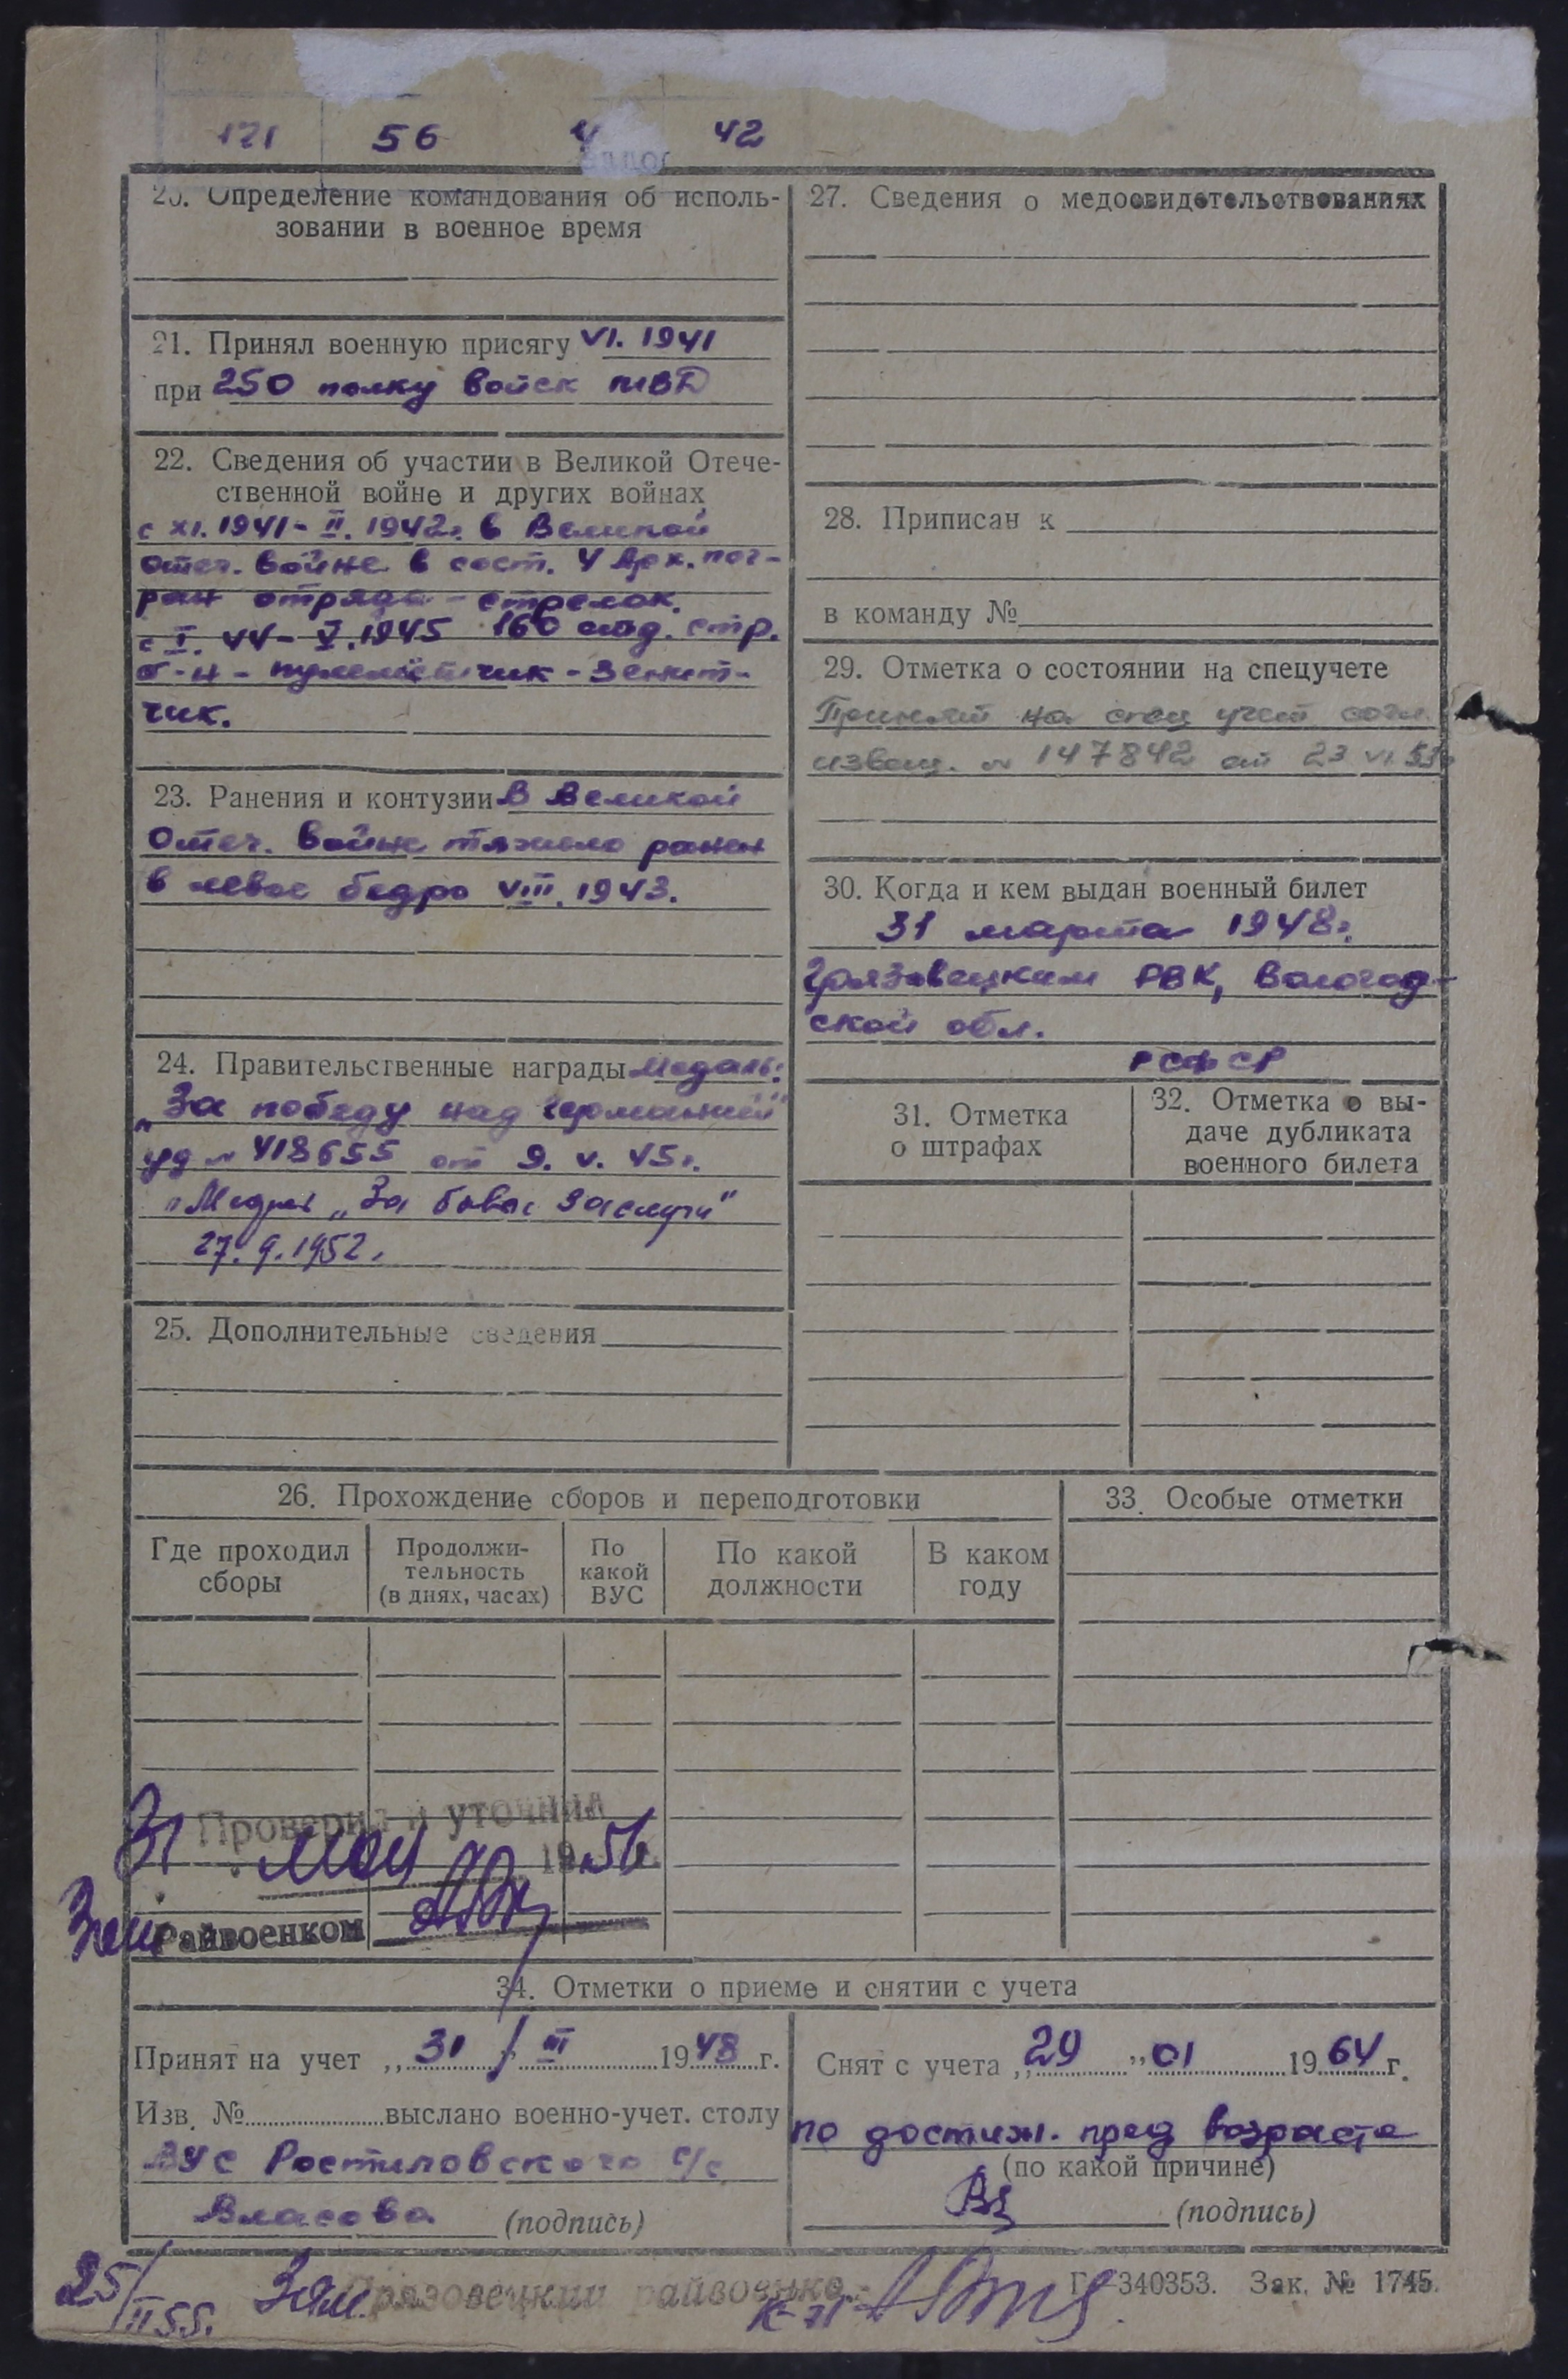 121 56 4 42
20. Определение командования об исполь-
зовании в военное время
21. Принял военную присягу VI. 1941
при 250 полку войск МВД
22. Сведения об участии в Великой Отече-
ственной войне и других войнах
с XI. 1941 - II. 1942г. в Великой
отеч. войне в сост. 4 Арх. пог-
ран отряда - стрелок.
с I. 44 - V. 1945 160 отд. стр.
б-н - пулеметчик - зенит-
чик.
23. Ранения и контузии В Великой
Отеч. войне тяжело ранен
в левое бедро VIII. 1943.
24. Правительственные награды медаль:
„За победу над Германией"
уд № 418655 от 9. V. 45г.
Медаль „За боевые заслуги"
27. 9. 1952.
25. Дополнительные сведения
27. Сведения о медосвидетельствованиях
28. Приписан к
в команду №
29. Отметка о состоянии на спецучете
Принят на спец учет согл.
извещ. № 147842 от 23 VI 53г
30. Когда и кем выдан военный билет
31 марта 1948г.
Грязовецким РВК, Вологод-
ской обл.
РСФСР
31. Отметка
о штрафах
32. Отметка о вы-
даче дубликата
военного билета
26. Прохождение сборов и переподготовки
33. Особые отметки
Где проходил
сборы
Продолжи-
тельность
(в днях, часах)
По
какой
ВУС
По какой
должности
В каком
году
Проверил и уточнил
31 мая 1956.
Зам Райвоенком
34. Отметки о приеме и снятии с учета
Принят на учет „31" III 1948 г.
Изв. № выслано военно-учет. столу
ВУС Ростиловского с/с
Власова (подпись)
Снят с учета „29" 01 1964 г.
по достиж. пред возраста
(по какой причине)
(подпись)
25/II 55. Зам. Грязовецкий райвоенком
к-н
Г-340353. Зак. № 1745.